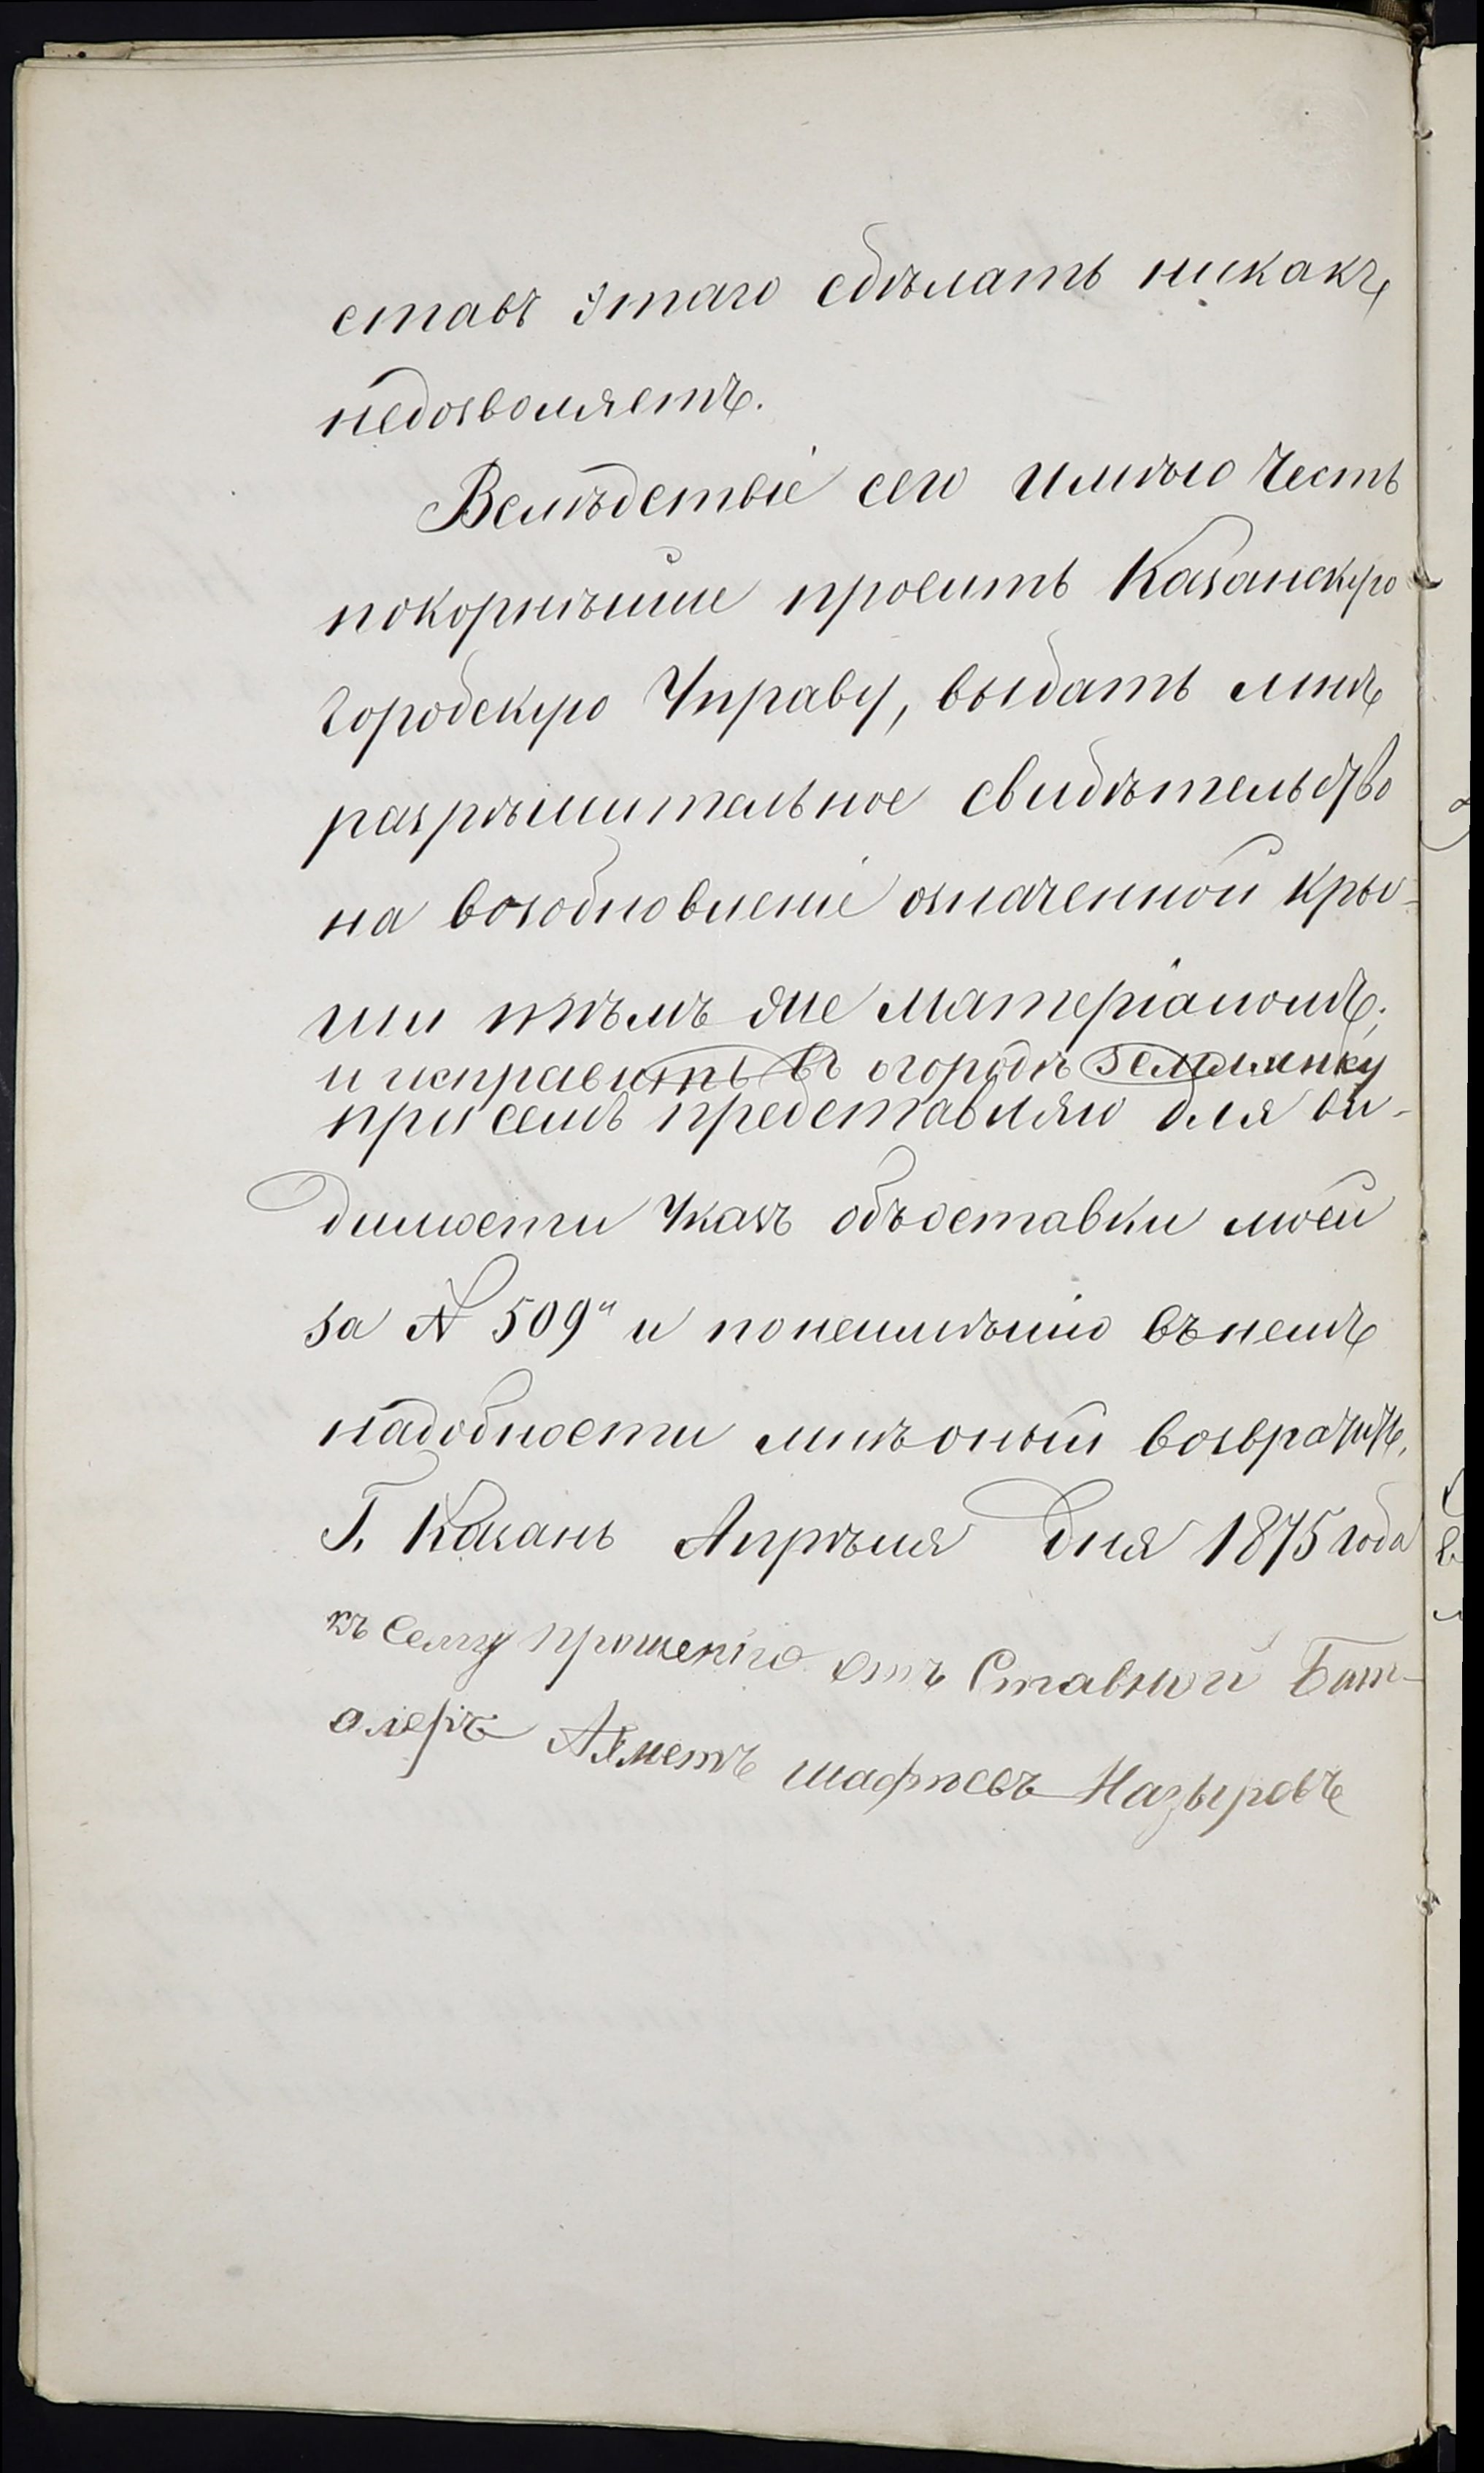 ставъ этаго сдѣлать никакъ
недозволяетъ.
Вслѣдствіе сего имѣю честь
покорнѣйше просить Казанскую
городскую Управу, выдать мнѣ
разрѣшительное свидѣтельство
на возобновленіе означенной кры-
ши тѣмъ же матеріаломъ;
и исправить въ огородѣ землянку
при семъ представляю для ви-
димости Указъ объоставки моей
за № 509й и понеимѣнію въ немъ
надобности мнѣ оный возвратить.
Г. Казань Апрѣля дня 1875 года
къ Сему прошенію отъ Ставной Бат-
алеръ Ахметъ шафѣевъ Назыровъ